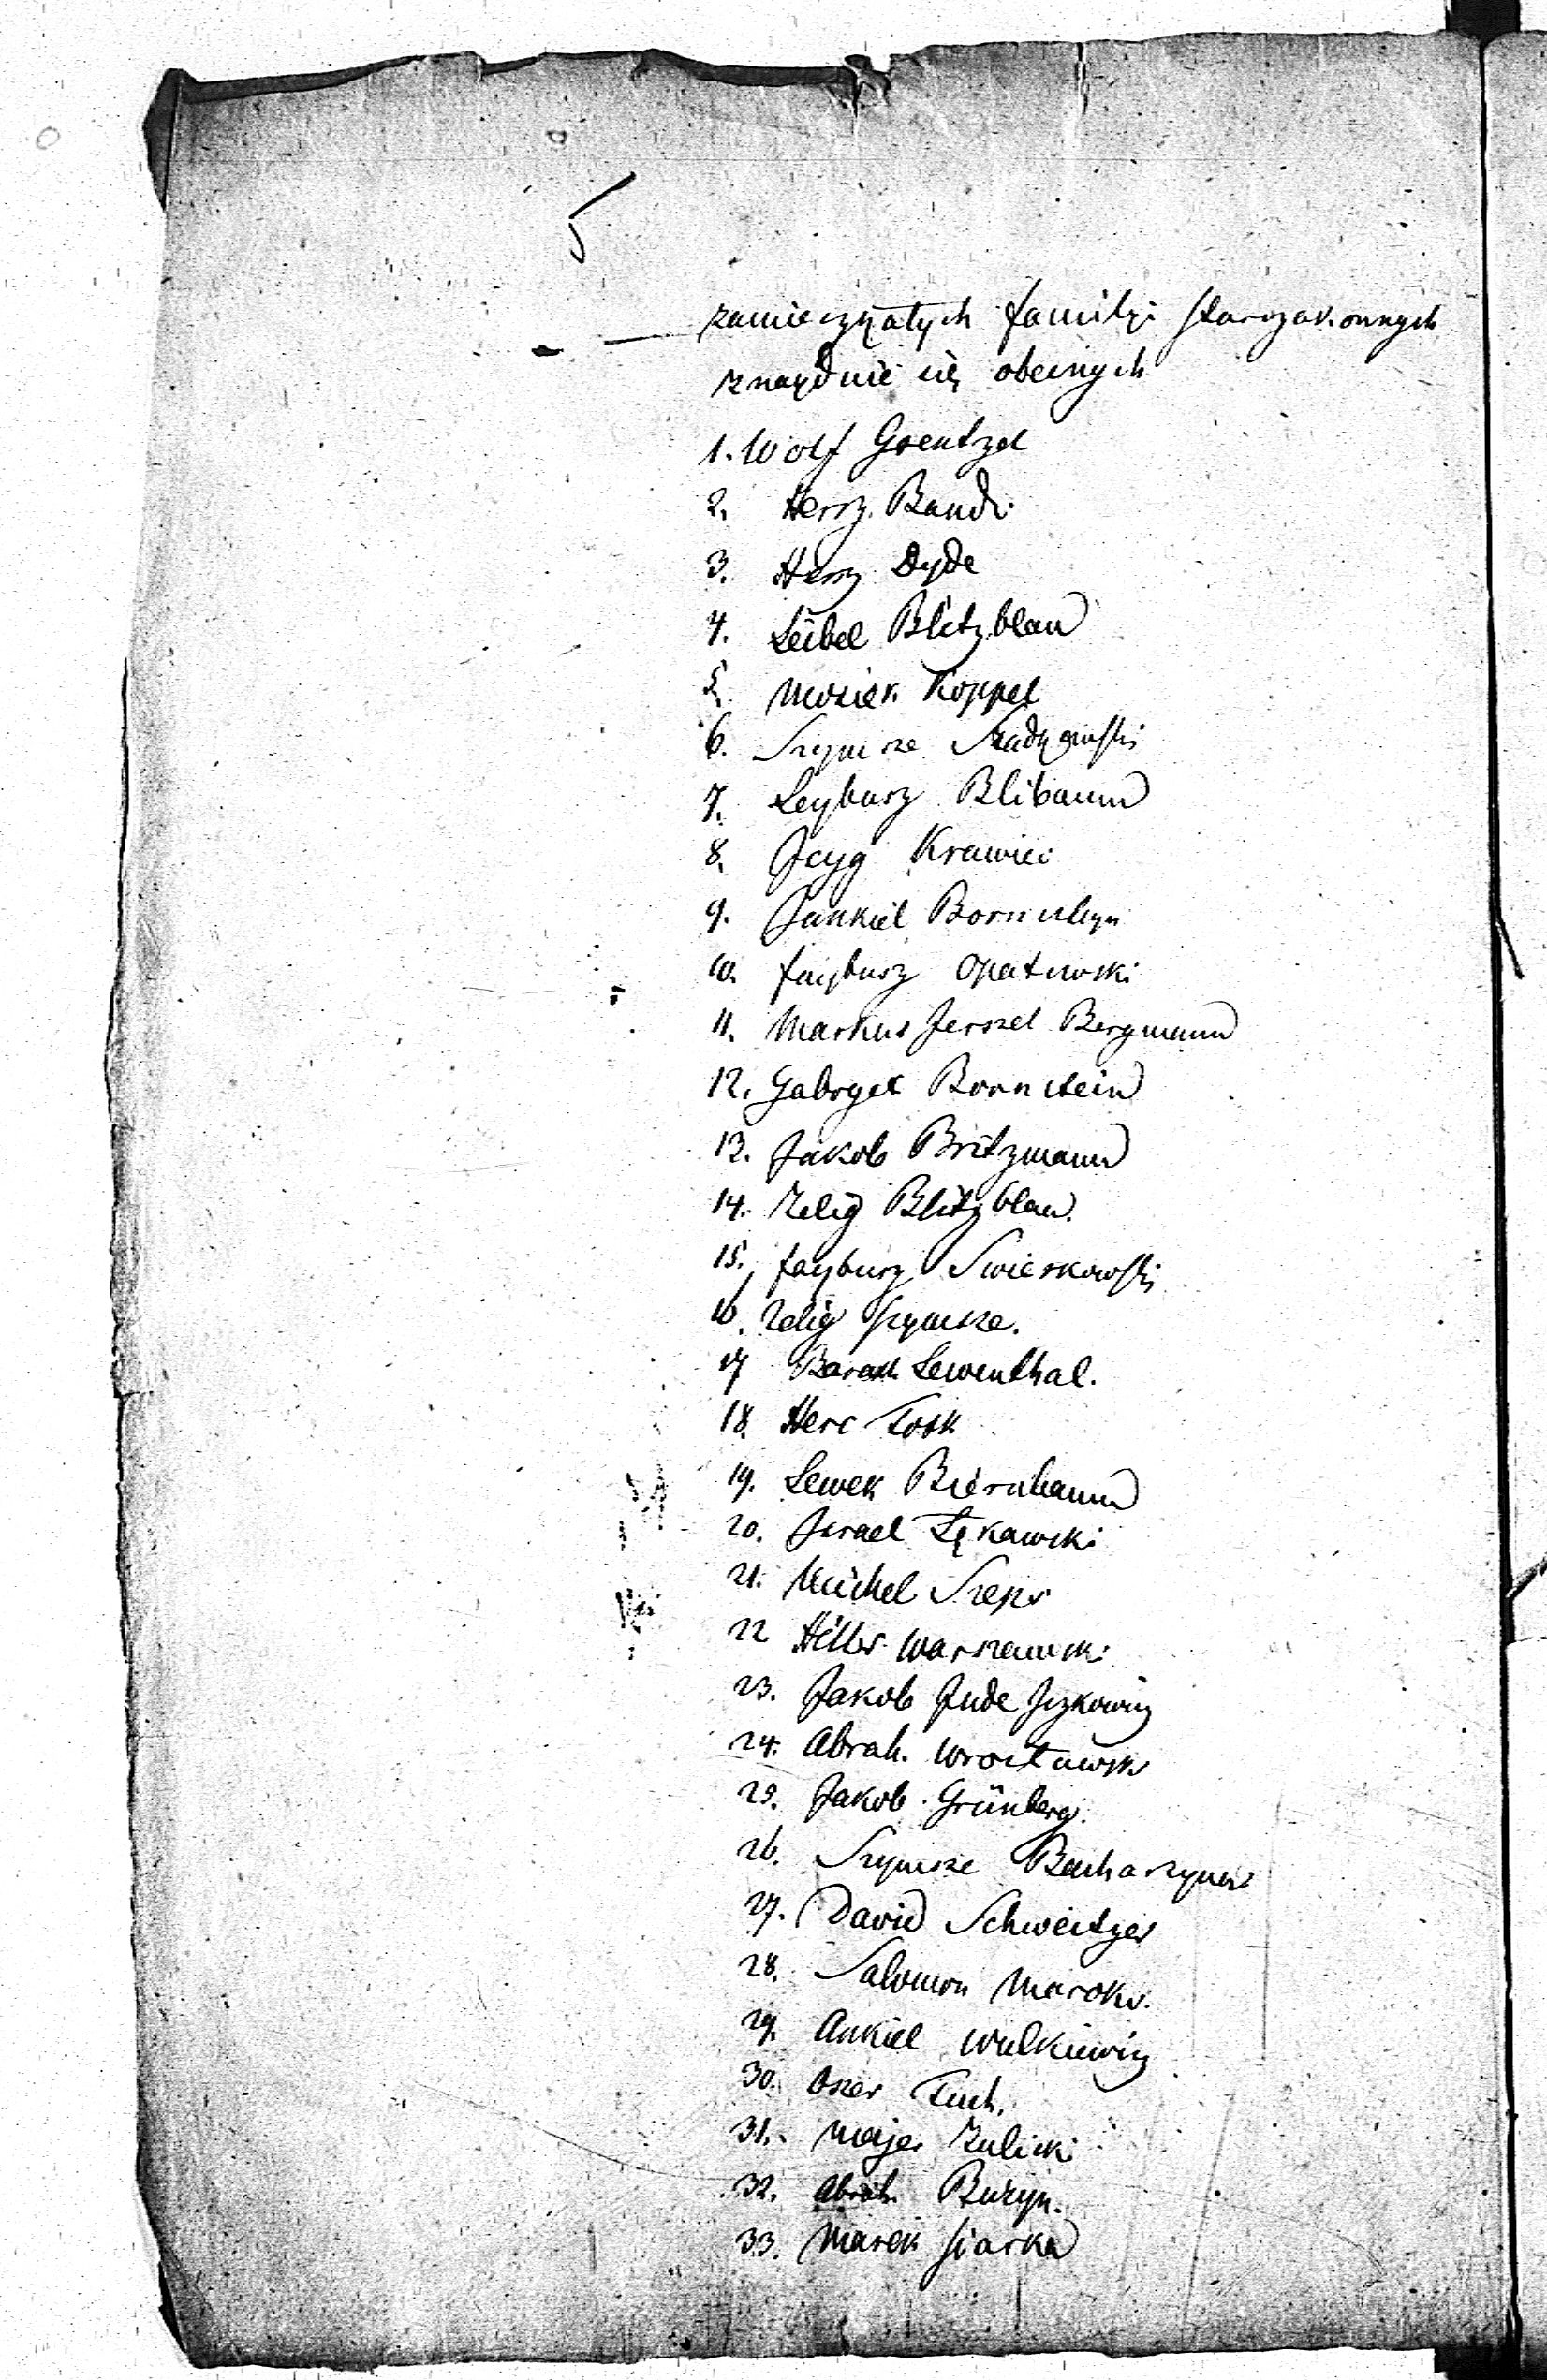 5
zamieszkałych familyi starozakonnych
znayduie się obecnych
1. Wolf Grentzel
2. Hersz Band
3. Hersz Dyde
4. Leibel Blitzblau
5. Mosiek Koppel
6. Szymsze Szadkowski
7. Leybusz Blibaum
8. Icyg Krawiec
9. Jankiel Bornsteyn
10. Faybusz Opatowski
11. Markus Jerszel Bergmann
12. Gabryel Bornstein
13. Jakob Britzmann
14. Zelig Blitzblau.
15. Faybusz Swierkowski
16. Zelig Szymsze.
17 Baruch Lewenthal.
18. Herc Tosk
19. Lewek Biernbaum
20. Israel Łękawski
21. Michel Szeps
22 Hiller Warszawski
23. Jakob Jude Iczkowicz
24. Abrah. Wrocławski
25. Jakob Grünberg.
26. Szymsze Bacharzyna
27. David Schweitzer
28. Salomon Maroko.
29. Ankiel Wulkiewicz
30. Oszer Tuch.
31. Majer Zulicki
32. Abrah. Buzyn.
33. Marek Siarka